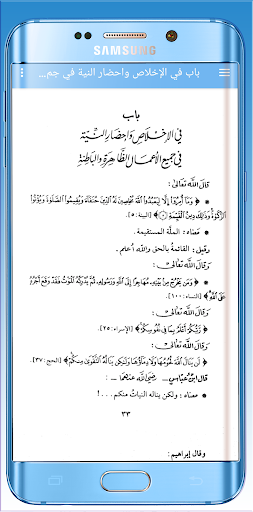 SAMSUNG
باب في الإخلاص واحضار النية في جم...
باب
في الإخلاص وإحضار النيّة
في جميع الأعمال الظاهرة والباطنة
قال الله تعالى:
﴿ وَمَا أُمِرُوا إِلَّا لِيَعْبُدُوا اللَّهَ مُخْلِصِينَ لَهُ الدِّينَ حُنَفَاءَ وَيُقِيمُوا الصَّلَاةَ وَيُؤْتُوا
الزَّكَاةَ وَذَلِكَ دِينُ الْقَيِّمَةِ ﴾ [البينة: ٥].
• معناه: الملّة المستقيمة.
وقيل: القائمةُ بالحق والله أعلم.
وقال الله تعالى:
﴿ وَمَن يَخْرُجْ مِن بَيْتِهِ مُهَاجِرًا إِلَى اللَّهِ وَرَسُولِهِ ثُمَّ يُدْرِكْهُ الْمَوْتُ فَقَدْ وَقَعَ أَجْرُهُ
عَلَى اللَّهِ ﴾ [النساء: ١٠٠].
وقال الله تعالى:
﴿ رَّبُّكُمْ أَعْلَمُ بِمَا فِي نُفُوسِكُمْ ﴾ [الإسراء: ٢٥].
وقال الله تعالى:
﴿ لَن يَنَالَ اللَّهَ لُحُومُهَا وَلَا دِمَاؤُهَا وَلَكِن يَنَالُهُ التَّقْوَى مِنكُمْ ﴾ [الحج: ٣٧].
قال ابن عباس ـ رضي الله عنهما ـ :
• معناه: ولكن يناله النيات منكم ...!
٣٣
وقال إبراهيم: